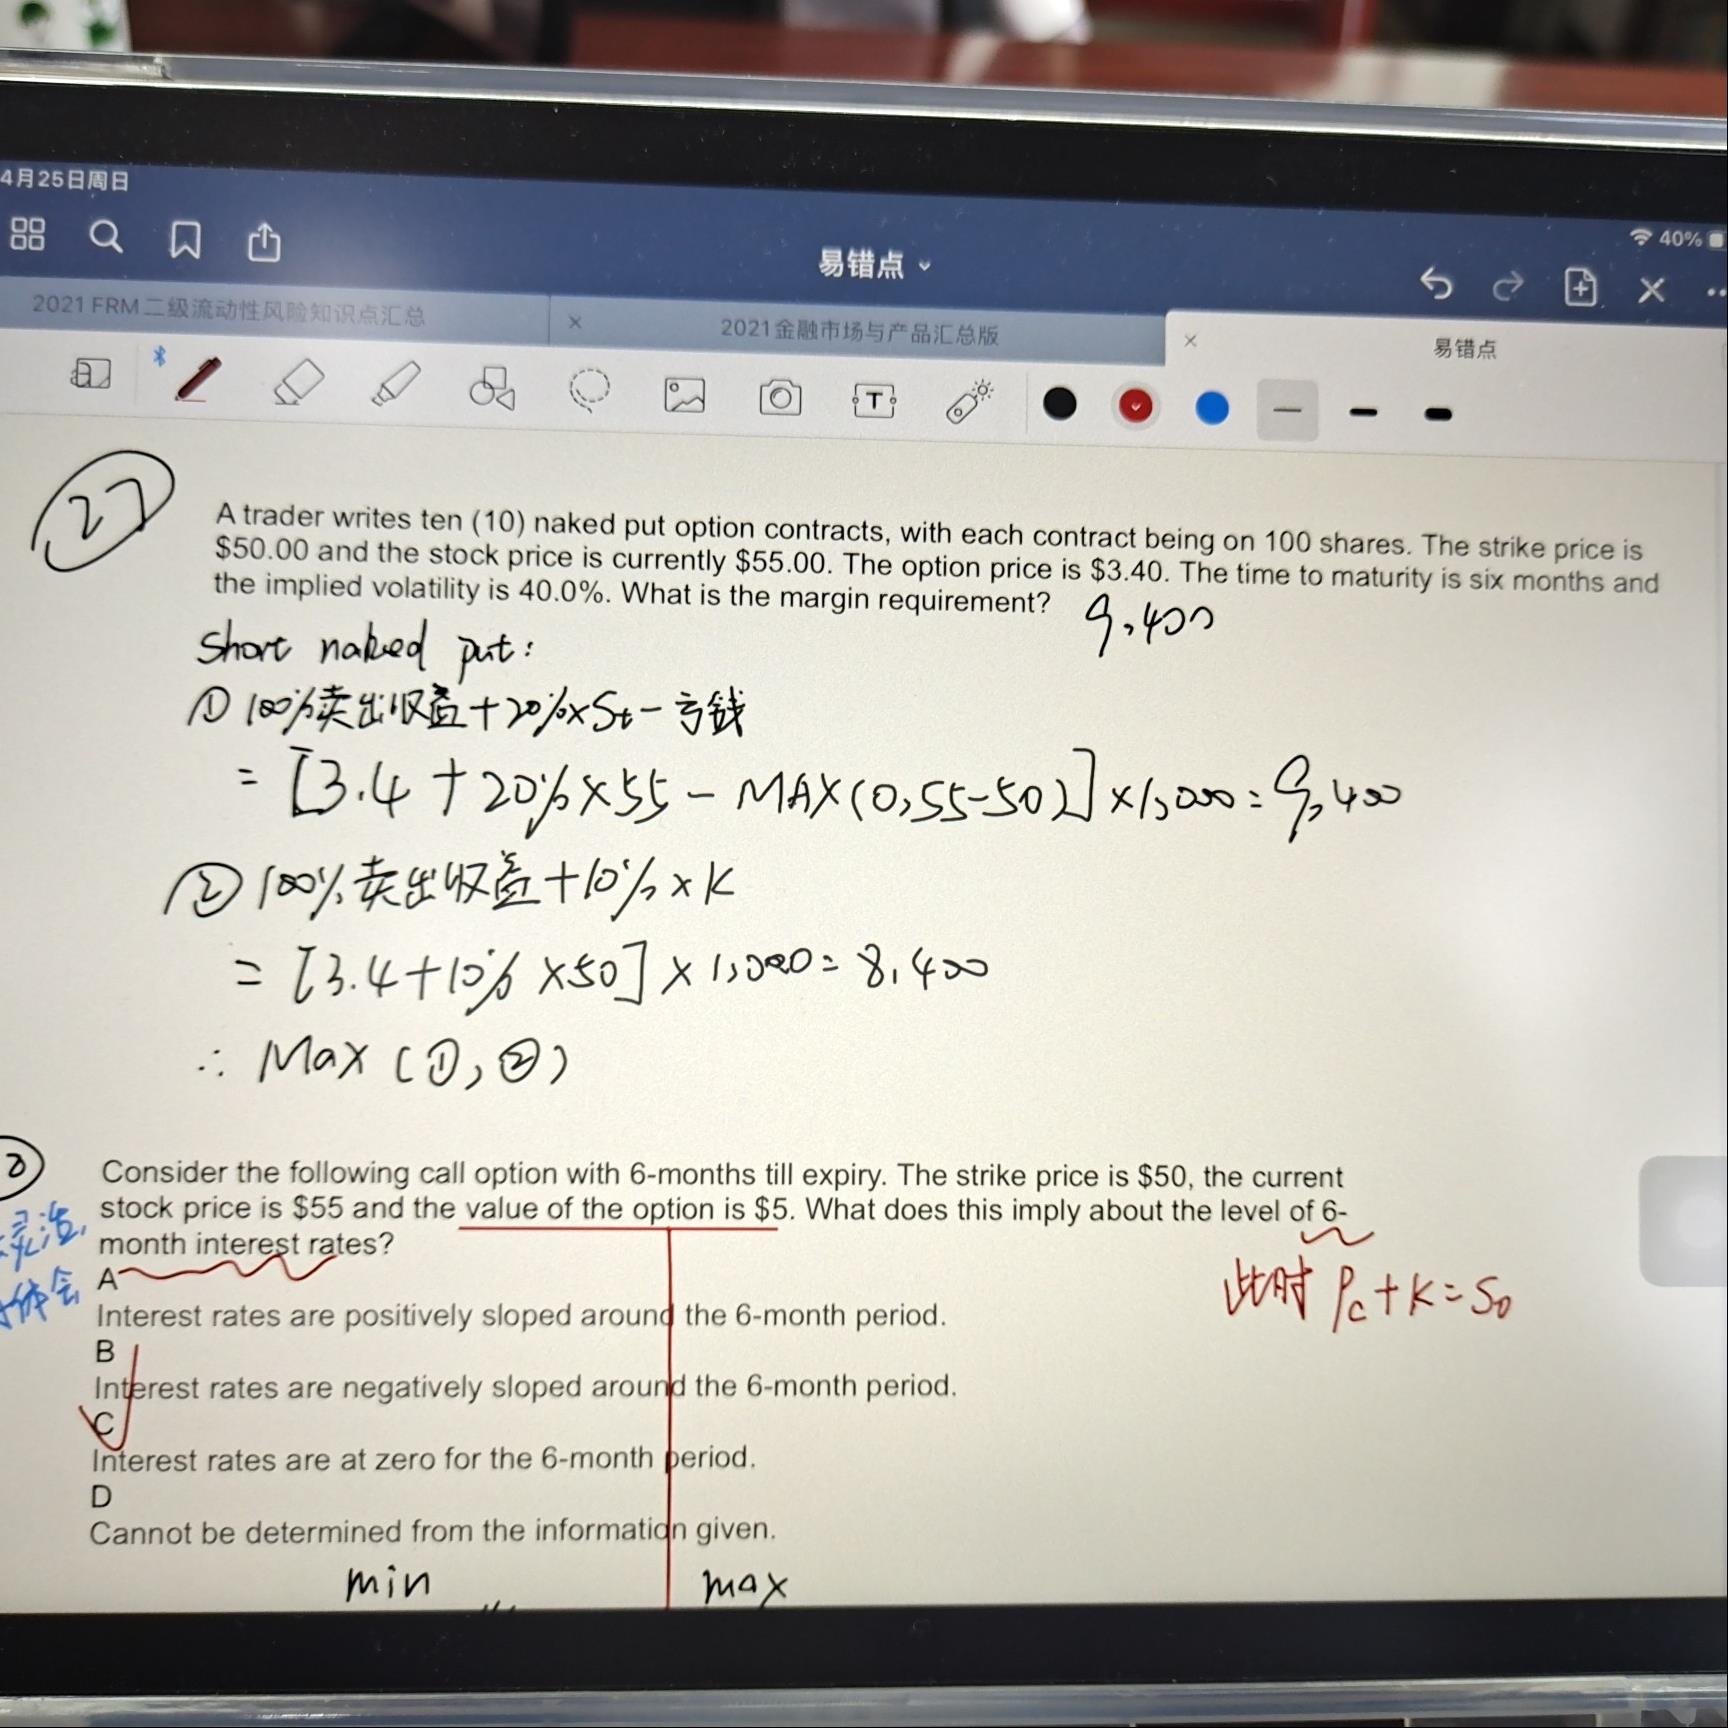 4月25日周日
40%
易错点
2021 FRM二级流动性风险知识点汇总
2021金融市场与产品汇总版
易错点
27
A trader writes ten (10) naked put option contracts, with each contract being on 100 shares. The strike price is
$50.00 and the stock price is currently $55.00. The option price is $3.40. The time to maturity is six months and
the implied volatility is 40.0%. What is the margin requirement? 9,400
Short naked put:
① 100%卖出收益+20%×St-亏钱
= [3.4 + 20%×55 - MAX(0,55-50)]×1,000=9,400
② 100%卖出收益+10%×K
= [3.4+10%×50]×1,000=8,400
∴ Max (①,②)
Consider the following call option with 6-months till expiry. The strike price is $50, the current
stock price is $55 and the value of the option is $5. What does this imply about the level of 6-
month interest rates?
此时 Pc+K=S0
A
Interest rates are positively sloped around the 6-month period.
B
Interest rates are negatively sloped around the 6-month period.
C
Interest rates are at zero for the 6-month period.
D
Cannot be determined from the information given.
min max